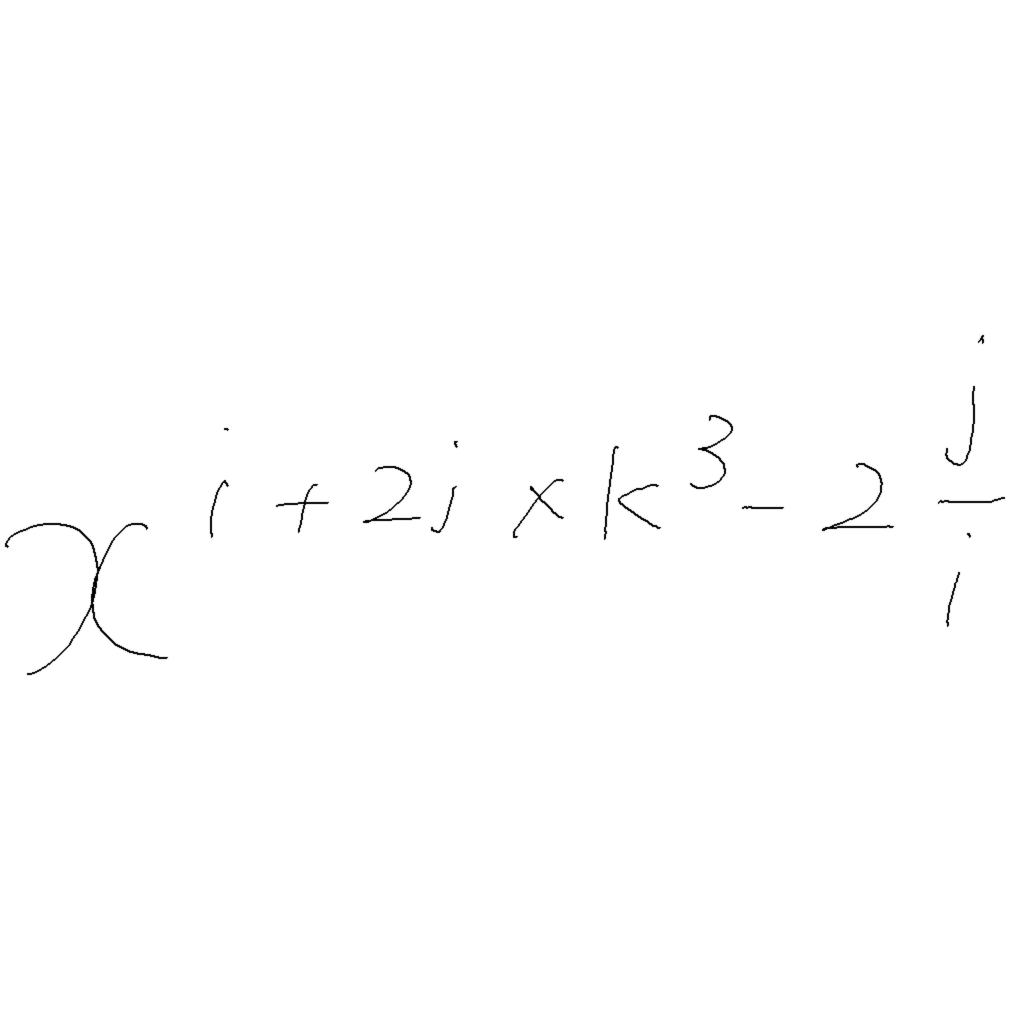 $x^{i+2j \times k^3 - 2\frac{j}{i}}$